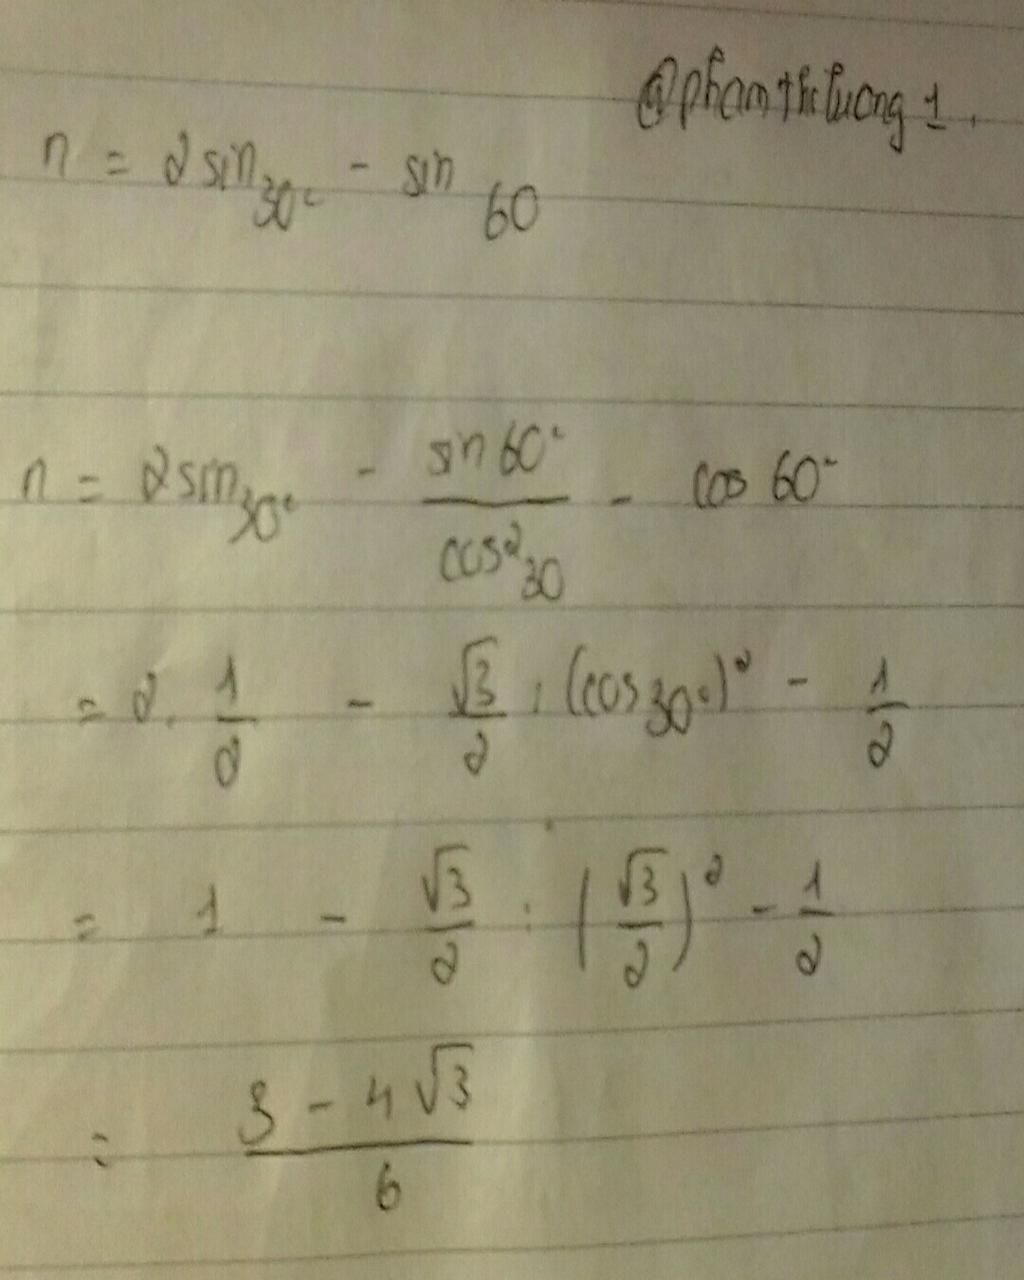 @phamthituong1.
n = 2 sin 30° - sin 60
n = 2 sin 30° - sin 60° / cos² 30 - cos 60°
= 2. 1/2 - √3/2 : (cos 30°)² - 1/2
= 1 - √3/2 : (√3/2)² - 1/2
= 3 - 4√3 / 6